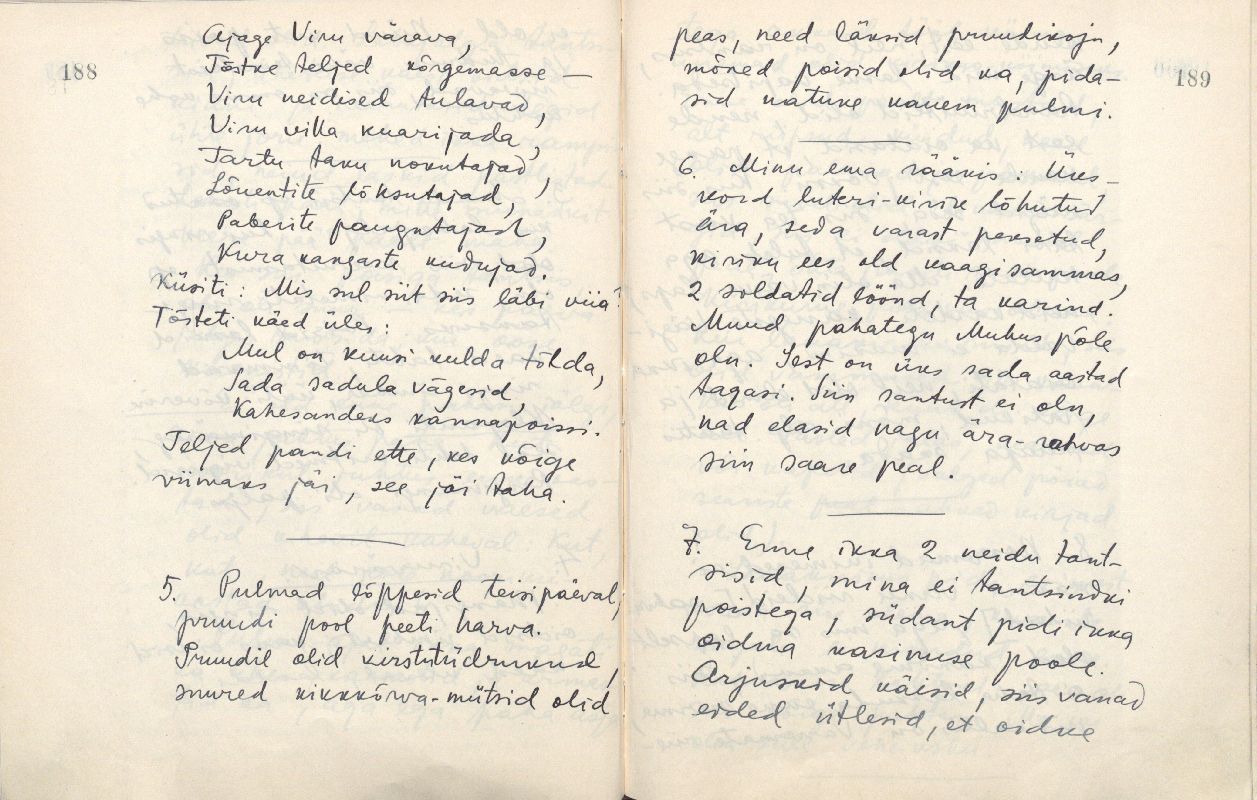 188
Ajage Viru värava,
Tõstke teljed kõrgemasse —
Viru neidised tulavad,
Viru villa kuarijada,
Tartu taku nokutajad,
Lõuentite lõksutajad,
Paberite paugutajad,
Kura kangaste kudujad.
Küsiti: Mis sul siit siis läbi viia?
Tõsteti käed üles:
Mul on kuusi kulda tõlda,
Sada sadula vägesid,
Kahesandeks kannapoissi.
Teljed pandi ette, kes kõige
viimaks jäi, see jäi taha.
5. Pulmad lõppesid teisipäeval,
pruudi pool peeti harva.
Pruudil olid kirstutüdrukud,
suured kikkkõrva-mütsid olid
189
peas, need läksid pruudikoju,
mõned poisid olid ka, pida-
sid natuke kauem pulmi.
6. Minu ema rääkis: Üks-
kord luteri-kirik lõhutud
ära, seda varast peksetud,
kiriku ees old kaagisammas,
2 soldatid löönd, ta karind.
Muud pahategu Muhus põle
oln. Sest on üks sada aastad
tagasi. Siin santust ei oln,
nad elasid nagu ära-rahvas
siin saare peal.
7. Enne ikka 2 neidu tant-
sisid, mina ei tantsindki
poistega, südant pidi ikka
oidma kasinuse poole.
Arjuskid käisid, siis vanad
eided ütlesid, et oidke